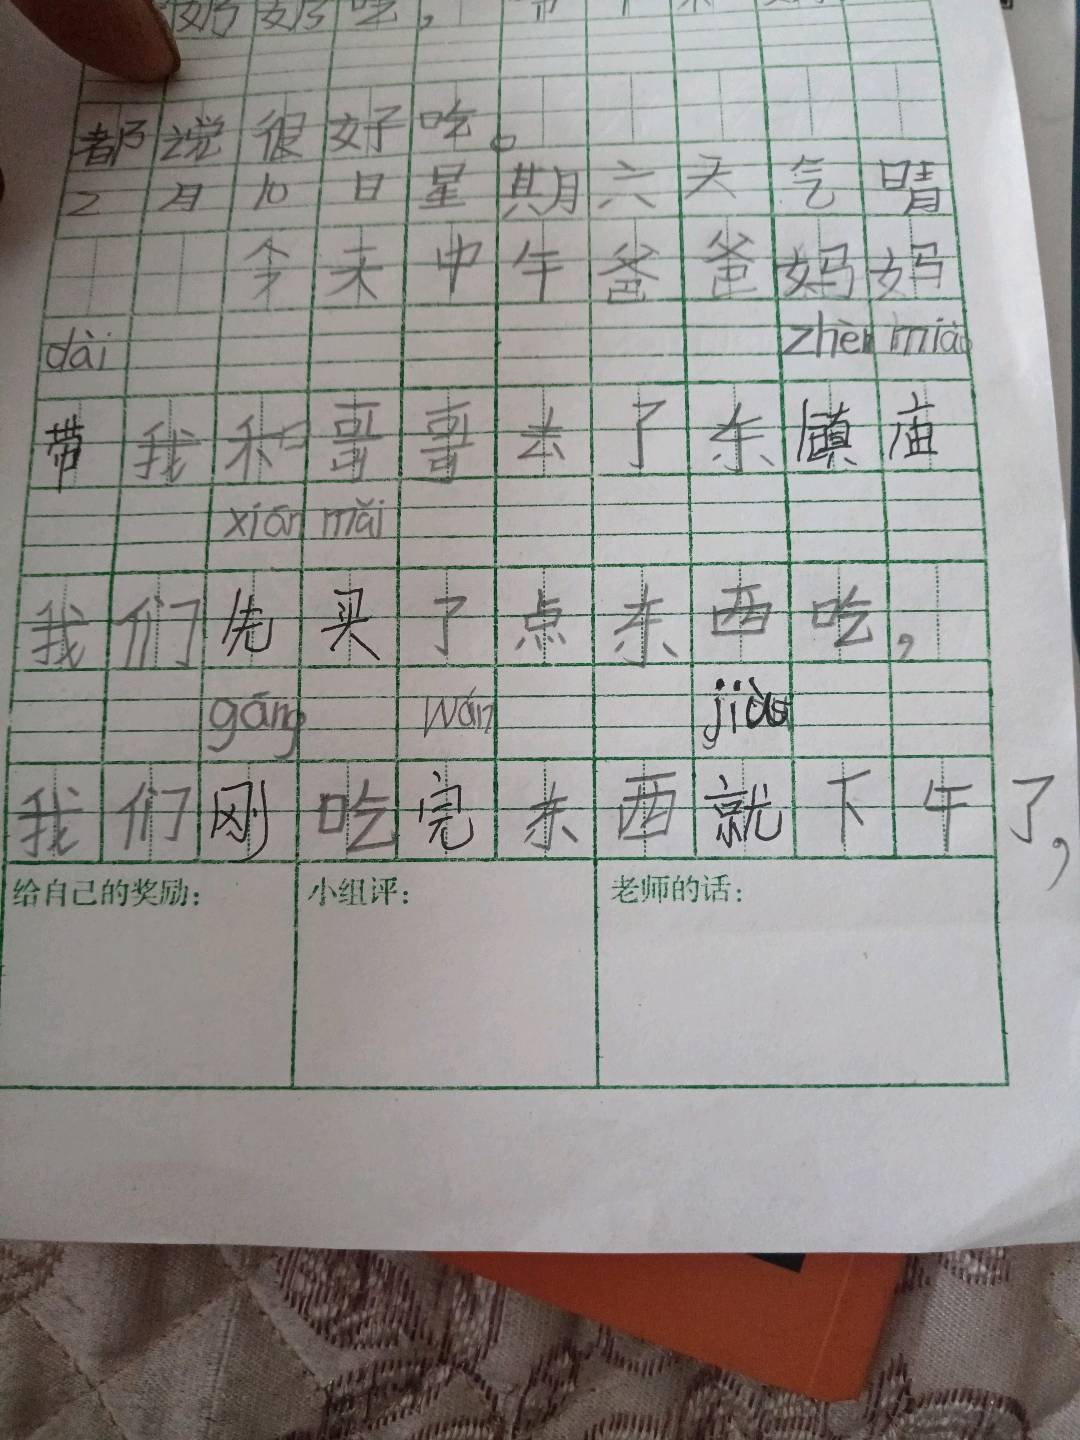 奶奶吃，
都说很好吃。
2月10日星期六天气晴
今天中午爸爸妈妈
dài zhèn miào
带我和哥哥去了东镇庙
xiān mǎi
我们先买了点东西吃，
gāng wán jiù
我们刚吃完东西就下午了，
给自己的奖励： 小组评： 老师的话：